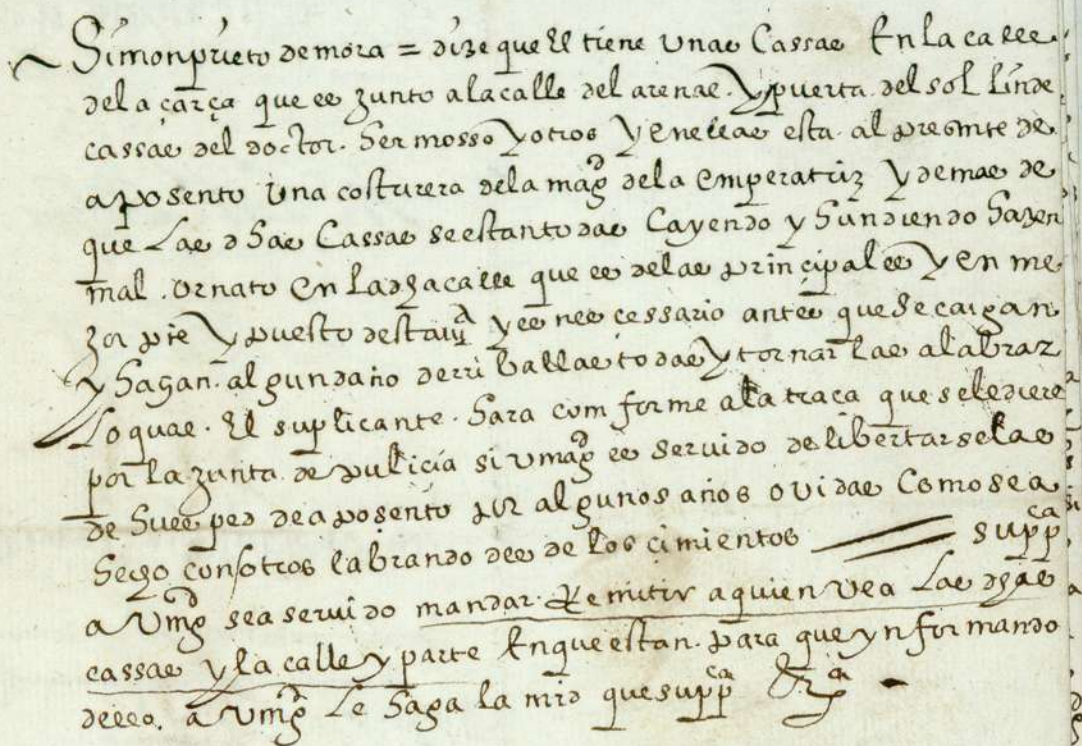 Simon prieto de mora = dize que el tiene unas Cassas En la calle
de la çarça que es Junto a la calle del arenal. Y puerta del sol Linde
cassas del doctor. hermosso Y otros Y en ellas esta al presente de
aposento una costurera de la magd de la Emperatriz Y demas de
que Las dhas Cassas se estan todas Cayendo y hundiendo hazen
mal. ornato en La dha calle que es de las principales Y en me
Jor pie Y puesto desta va Y es nescessario antes que Se caigan
Y hagan. algun daño derriballas todas Y tornarlas a labrar
Lo qual. El suplicante. hara comforme a la traça que se le diere
por la Junta de pulicia si vmagd es servido de libertarselas
de huesped de aposento por algunos años o vidas Como se a
hecho con otros labrando desde los cimientos suppca
a Vmgd sea servido mandar Remitir a quien vea Las dhas
cassas y la calle y parte En que estan. para que ynformando
dello. a Vmgd Le haga la mrd que suppca